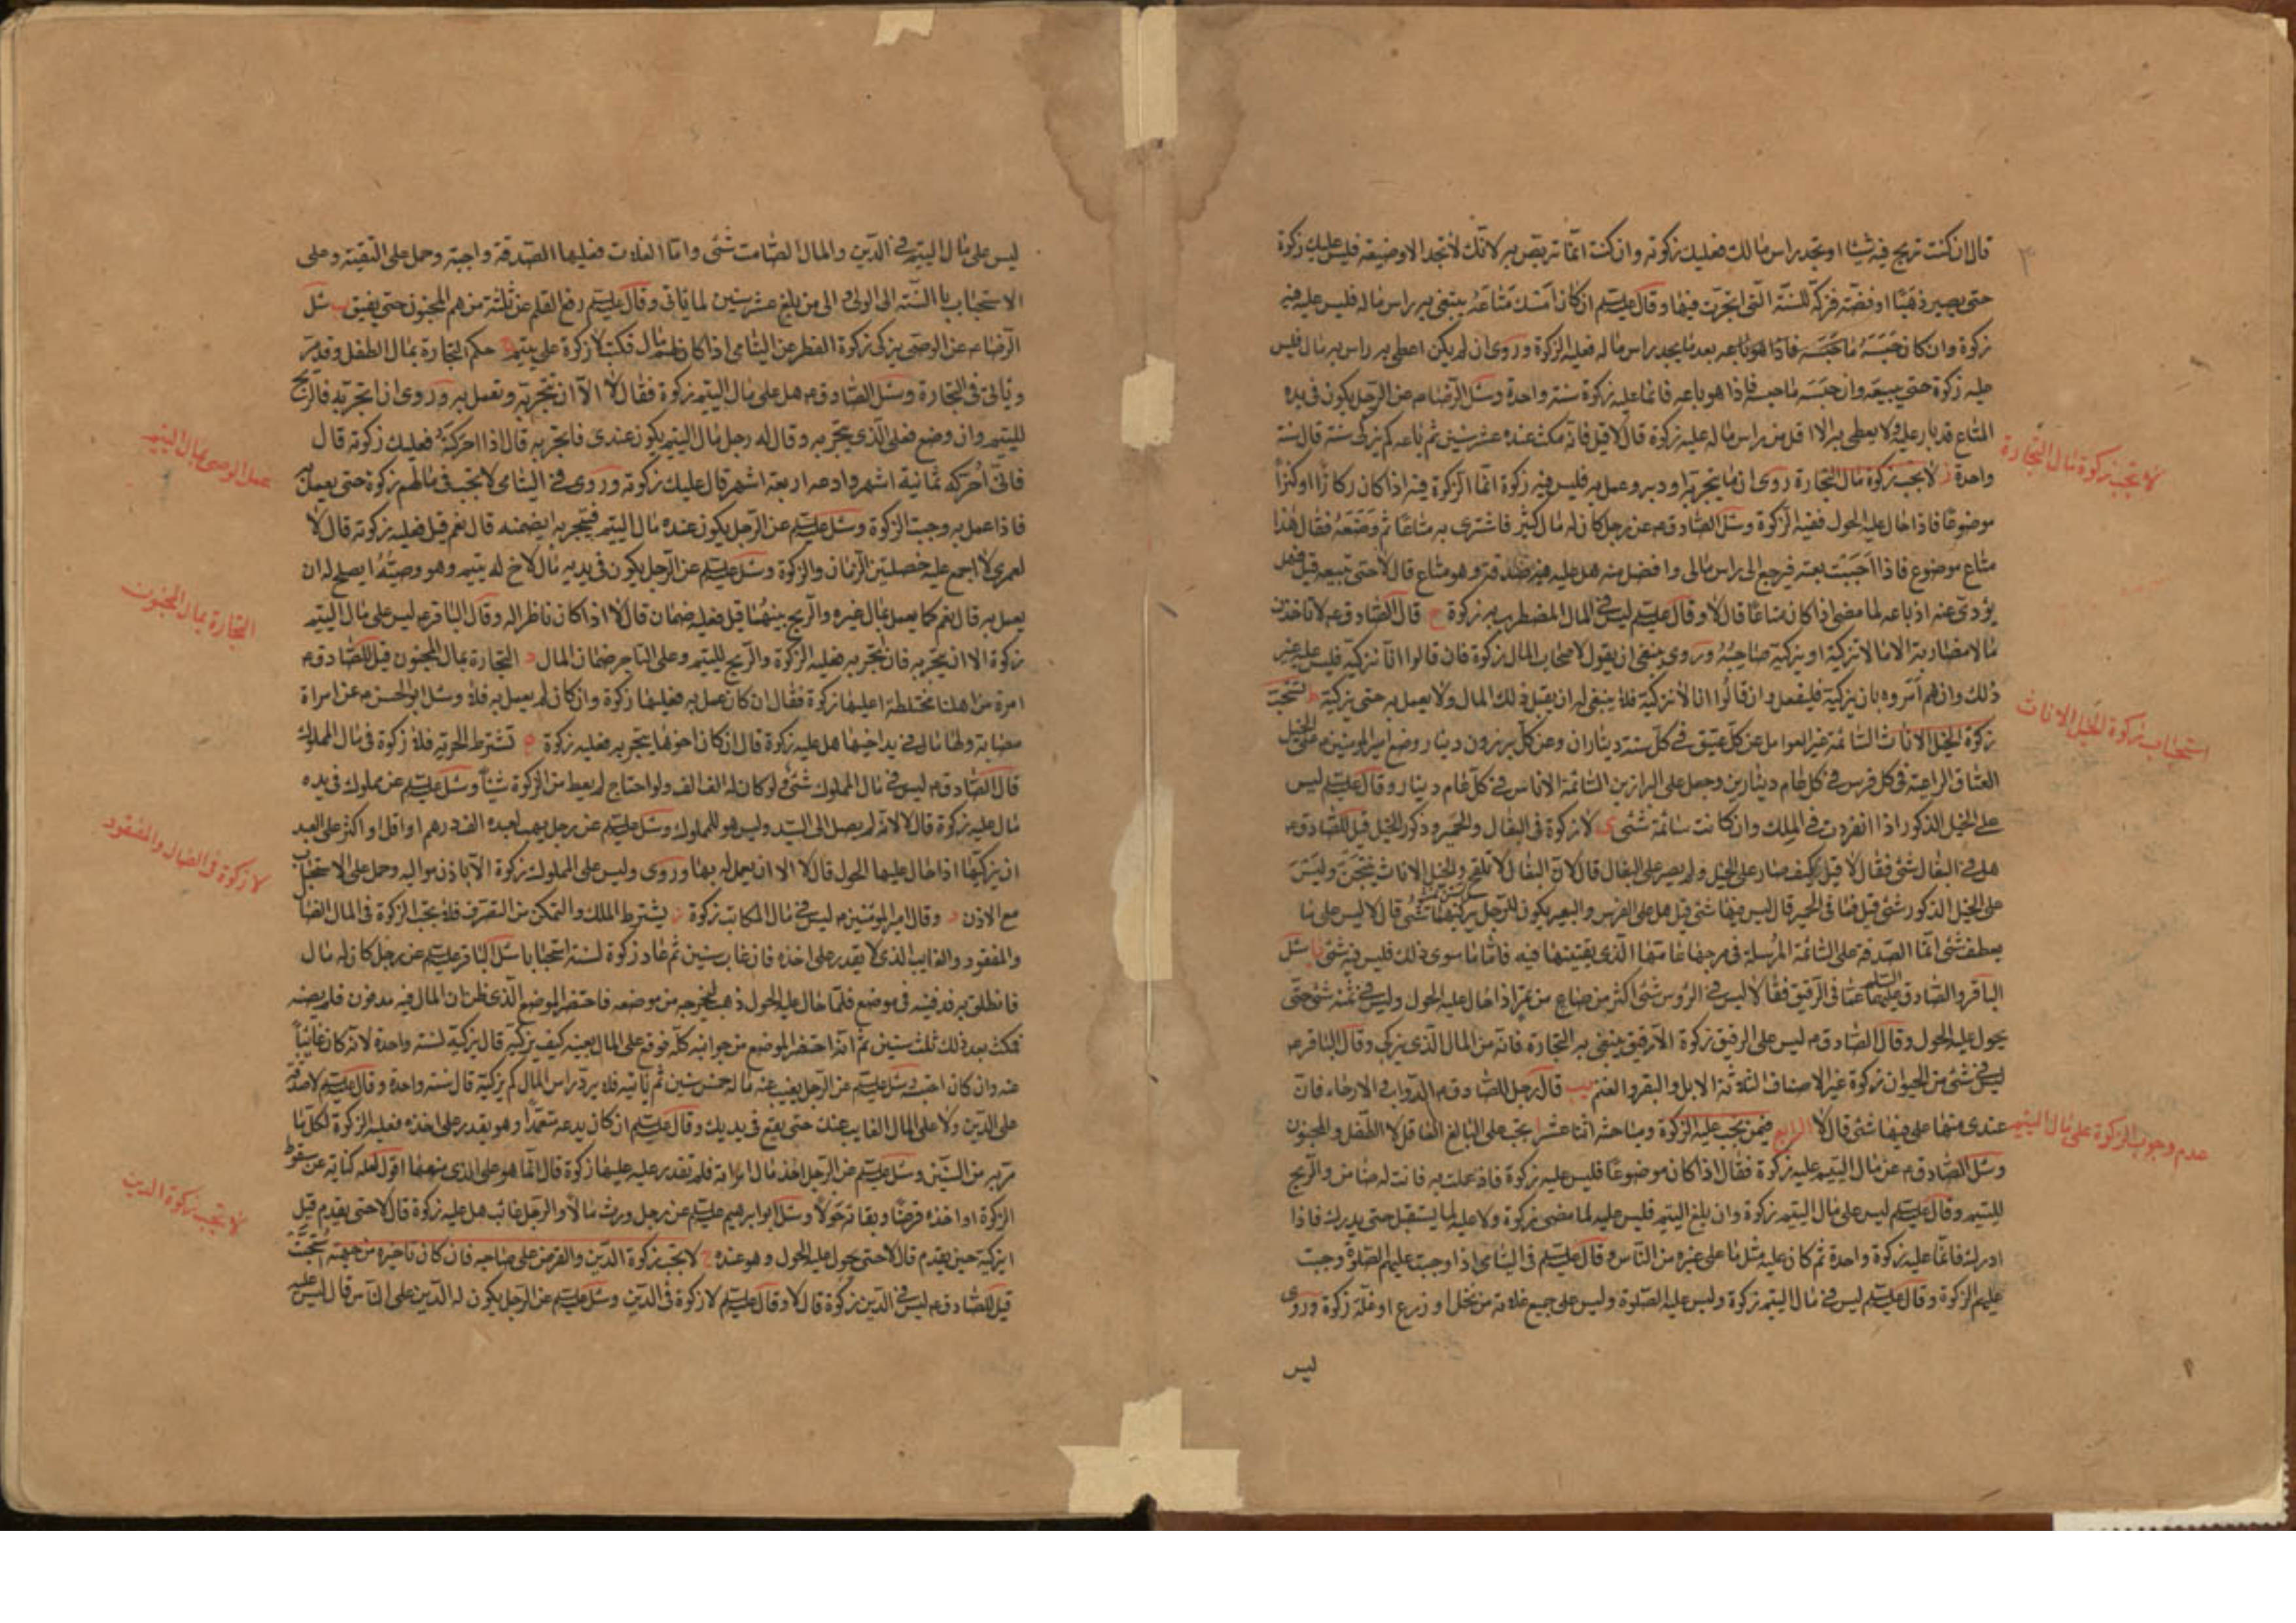 قال ان كنت تربح فيه شيئا او تجد راس مالك فعليك زكوته وان كنت انما تربص به لانك لا تجد الا وضيعة فليس عليك زكوة
حتى يصير ذهبا او فضة فزكه للسنة التى اتجرت فيها وقال عليه السلم ان كان امسك متاعه يبتغى به راس ماله فليس عليه فيه
زكوة وان كان حبسه ما حبسه فاذا هو باعه بعد ما يجد راس ماله فعليه الزكوة وروى ان لم يكن اعطى به راس ماله فليس
عليه زكوة حتى يبيعه وان حبسه ما حبسه فاذا هو باعه فانما عليه زكوة سنة واحدة وسئل الرضا ع عن الرجل يكون فى يده
المتاع قد بار عليه ولا يعطى به الا اقل من راس ماله عليه زكوة قال لا قيل فانه مكث عنده عشر سنين ثم باعه كم يزكى سنة قال سنة
واحدة ز لا تجب زكوة مال التجارة روى ان ما يتجر به او دير وعمل به فليس فيه زكوة انما الزكوة فيه اذا كان ركازا او كنزا
موضوعا فاذا حال عليه الحول ففيه الزكوة وسئل الصادق ع عن رجل كان له مال كثير فاشترى به متاعا ثم وضعه فقال هذا
متاع موضوع فاذا احببت بعته فيرجع الى راس مالى وافضل منه هل عليه فيه صدقة وهو متاع قال لا حتى تبيعه قيل فهل
يؤدى عنه اذ باعه لما مضى اذا كان متاعا قال لا وقال عليه السلم ليس فى المال المضطرب به زكوة ح قال الصادق ع لا تاخذن
مالا مضاربة الا مالا تزكيه او يزكيه صاحبه وروى ينبغى ان يقول لاصحاب المال زكوة فان قالوا انا نزكيه فليس عليه غير
ذلك وان هم امروه بان يزكيه فليفعل وان قالوا انا لا نزكيه فلا ينبغى له ان يقبل ذلك المال ولا يعمل به حتى يزكيه ط تستحب
زكوة الخيل الاناث السائمة غير العوامل عن كل عتيق فى كل سنة ديناران وعن كل برزون دينار وضع امير المومنين ع على الخيل
العتاق الراعية فى كل فرس فى كل عام دينارين وجعل على البرازين السائمة الاناث فى كل عام دينار وقال عليه السلم ليس
على الخيل الذكور اذا انفردت فى الملك وان كانت سائمة شئى ى لا زكوة فى البغال والحمير وذكور الخيل قيل للصادق ع
هل فى البغال شئى فقال لا قيل كيف صار على الخيل ولم يصر على البغال قال لان البغال لا تلقح والخيل الاناث ينتجن وليس
على الخيل الذكور شئى قيل فما فى الحمير قال ليس فيها شئى قيل هل على الفرس والبعير يكون للرجل يركبها شئى قال لا ليس على ما
يعلف شئى انما الصدقة على السائمة المرسلة فى مرجها عامها الذى يقتنيها فيه فاما ما سوى ذلك فليس فيه شئى يا سئل
الباقر والصادق عليهما السلم عما فى الرقيق فقالا ليس فى الروس شئى اكثر من صاع من تمر اذا حال عليه الحول وليس فى ثمنه شئى حتى
يحول عليه الحول وقال الصادق ع ليس على الرقيق زكوة الا رقيق يبتغى به التجارة فانه من المال الذى يزكى وقال الباقر ع
ليس فى شئى من الحيوان زكوة غير الاصناف الثلاثة الابل والبقر والغنم يب قال رجل للصادق ع الدواب فى الارحاء فان
عندى منها على فيها شئى قال لا الرابع فيمن تجب عليه الزكوة ومباحثه اثنا عشر ا يجب على البالغ العاقل لا الطفل والمجنون
وسئل الصادق ع عن مال اليتيم عليه زكوة فقال اذا كان موضوعا فليس عليه زكوة فاذ عملت به فانت له ضامن والربح
لليتيم وقال عليه السلم ليس على مال اليتيم زكوة وان بلغ اليتيم فليس عليه لما مضى زكوة ولا عليه لما يستقبل حتى يدرك فاذا
ادرك فانما عليه زكوة واحدة ثم كان عليه مثل ما على غيره من الناس وقال عليه السلم فى اليتامى اذا وجبت عليهم الصلوة وجبت
عليهم الزكوة وقال عليه السلم ليس فى مال اليتيم زكوة وليس عليه الصلوة وليس على جميع غلاته من نخل او زرع او غلة زكوة وروى
ليس
لا تجب زكوة مال التجارة
استحباب زكوة الخيل الاناث
عدم وجوب الزكوة على مال اليتيم
ليس على مال اليتيم فى الدين والمال الصامت شئى واما الغلات فعليها الصدقة واجبة وحمل على التقية وعلى
الاستحباب بالنسبة الى الولى والى من بلغ عشر سنين لما ياتى وقال عليه السلم رفع القلم عن ثلثة منهم المجنون حتى يفيق ب سئل
الرضا ع عن الوصى يزكى زكوة الفطر عن اليتامى اذا كان لهم مال فكتب لا زكوة على يتيم ج حكم التجارة بمال الطفل وقد مر
وياتى فى التجارة وسئل الصادق ع هل على مال اليتيم زكوة فقال لا الا ان تتجر به وتعمل به وروى ان اتجر به فالربح
لليتيم وان وضع فعلى الذى يتجر به وقال له رجل مال اليتيم يكون عندى فاتجر به قال اذا حركته فعليك زكوته قال
فانى احركه ثمانية اشهر وادعه اربعة اشهر قال عليك زكوته وروى فى اليتامى لا تجب فى مالهم زكوة حتى يعمل به
فاذا عمل به وجبت الزكوة وسئل عليه السلم عن الرجل يكون عنده مال اليتيم فيتجر به ايضمنه قال نعم قيل فعليه زكوته قال لا
لعمرى لا اجمع عليه خصلتين الزمان والزكوة وسئل عليه السلم عن الرجل يكون فى يديه مال لاخ له يتيم وهو وصيه ايصلح له ان
يعمل به قال نعم كما يعمل بمال غيره والربح بينهما قيل فعليه ضمان قال لا اذا كان ناظرا له وقال الباقر ع ليس على مال اليتيم
زكوة الا ان يتجر به فان اتجر به فعليه الزكوة والربح لليتيم وعلى التاجر ضمان المال د التجارة بمال المجنون قيل للصادق ع
امرة من اهلنا مختلطة اعليها زكوة فقال ان كان عمل به فعليها زكوة وان كان لم يعمل به فلا وسئل ابو الحسن ع عن امراة
مصابة ولها مال فى يد اخيها هل عليه زكوة قال ان كان اخوها يتجر به فعليه زكوة ه تشترط الحرية فلا زكوة فى مال المملوك
قال الصادق ع ليس فى مال المملوك شئى ولو كان له الف الف ولو احتاج لم يعط من الزكوة شيئا وسئل عليه السلم عن مملوك فى يده
مال عليه زكوة قال لا لانه لم يصل الى السيد وليس هو للمملوك وسئل عليه السلم عن رجل يهب لعبده الف درهم او اقل او اكثر على العبد
ان يزكيها اذا حال عليها الحول قال لا الا ان يعمل له بها وروى وليس على المملوك زكوة الا باذن مواليه وحمل على الاستحباب
مع الاذن و وقال امير المومنين ع ليس فى مال المكاتب زكوة ز يشترط الملك والتمكن من التصرف فلا تجب الزكوة فى المال الضال
والمفقود والغايب الذى لا يقدر على اخذه فان غاب سنين ثم عاد زكوة لسنة استحبابا سئل الباقر عليه السلم عن رجل كان له مال
فانطلق به فدفنه فى موضع فلما حال عليه الحول ذهب ليخرجه من موضعه فاحتفر الموضع الذى ظن ان المال فيه مدفون فلم يصبه
فمكث بعد ذلك ثلث سنين ثم انه احتفر الموضع من جوانبه كله فوقع على المال بعينه كيف يزكيه قال يزكيه لسنة واحدة لانه كان غائبا
عنه وان كان احتبسه وسئل عليه السلم عن الرجل يغيب عنه ماله خمس سنين ثم ياتيه فلا يرد راس المال كم يزكيه قال سنة واحدة وقال عليه السلم لا صدقة
على الدين ولا على المال الغايب عنك حتى يقع فى يديك وقال عليه السلم ان كان يدعه متعمدا وهو يقدر على اخذه فعليه الزكوة لكل ما
مر به من السنين وسئل عليه السلم عن الرجل اخذ مال امراته فلم تقدر عليه عليها زكوة قال انما هو على الذى منعها اقول لعله كناية عن سقوط
الزكوة او اخذه قرضا وبقائه حولا وسئل ابو ابرهيم عليه السلم عن رجل ورث مالا والرجل غائب هل عليه زكوة قال لا حتى يقدم قيل
ايزكيه حين يقدم قال لا حتى يحول عليه الحول وهو عنده ح لا تجب زكوة الدين والقرض على صاحبه فان كان تاخيره من جهته استحبت
قيل للصادق ع ليس فى الدين زكوة قال لا وقال عليه السلم لا زكوة فى الدين وسئل عليه السلم عن الرجل يكون له الدين على الناس قال ليس عليه
عمل الوصى بمال اليتيم
التجارة بمال المجنون
لا زكوة فى الضال والمفقود
لا تجب زكوة الدين